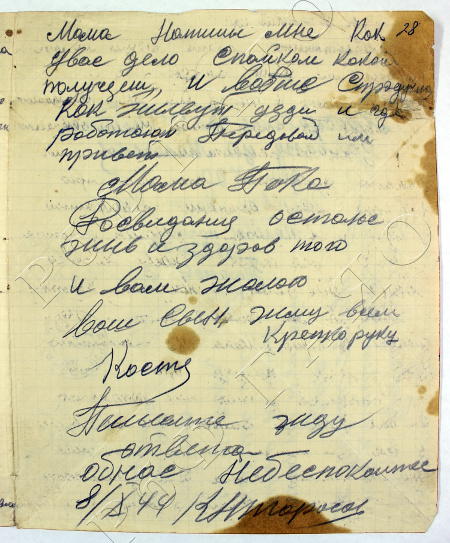 Мама Напиши мне Как 28
Увас дело Спайком какой
получаеш, и вобще
Как живут дяди и где
работают Передовай им
привет
Мама Пока
Досвидания остаюс
жив и здоров того
и вам желаю
ваш Сын жму вам
Крепко руку
Костя
Пишите жду
ответа
обнас Небеспокойтес
8/X 44